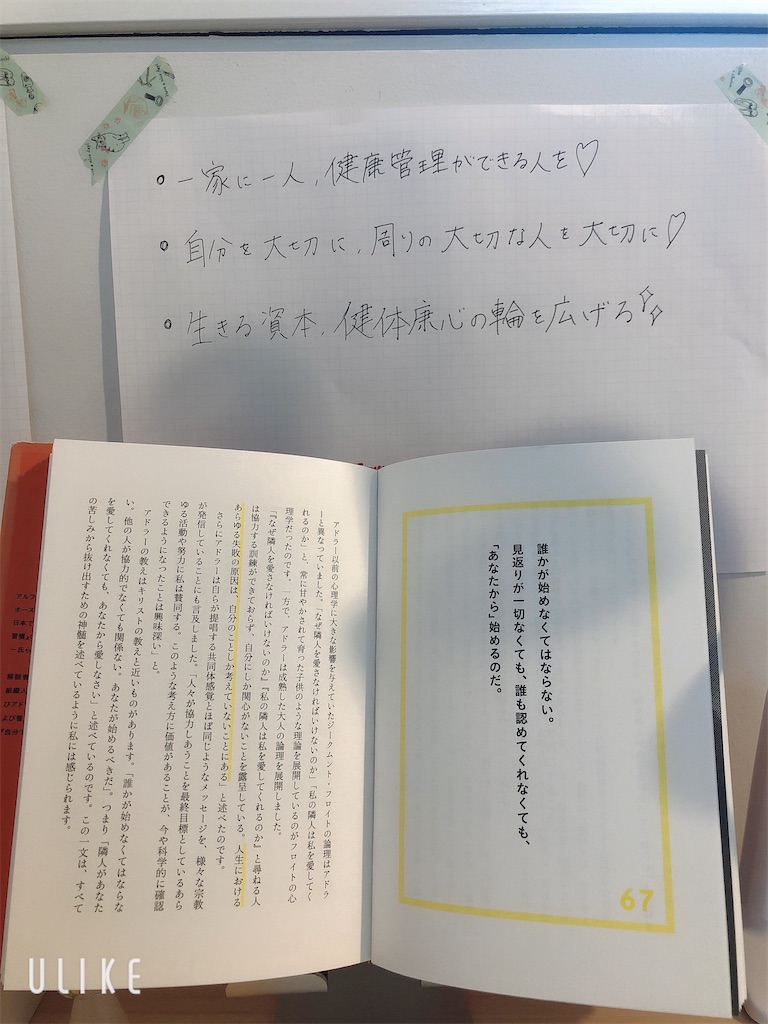 一家に一人，健康管理ができる人を♡
自分を大切に，周りの大切な人を大切に♡
生きる資本，健体康心の輪を広げる
誰かが始めなくてはならない。
見返りが一切なくても、誰も認めてくれなくても、
「あなたから」始めるのだ。
67
アドラー以前の心理学に大きな影響を与えていたジークムント・フロイトの論理はアドラ
ーと異なっていました。「なぜ隣人を愛さなければいけないのか」「私の隣人は私を愛してく
れるのか」と、常に甘やかされて育った子供のような理論を展開しているのがフロイトの心
理学だったのです。一方で、アドラーは成熟した大人の論理を展開しました。
「『なぜ隣人を愛さなければいけないのか』『私の隣人は私を愛してくれるのか』と尋ねる人
は協力する訓練ができておらず、自分にしか関心がないことを露呈している。人生における
あらゆる失敗の原因は、自分のことしか考えていないことにある」と述べたのです。
さらにアドラーは自らが提唱する共同体感覚とほぼ同じようなメッセージを、様々な宗教
が発信していることにも言及しました。「人々が協力しあうことを最終目標としているあら
ゆる活動や努力に私は賛同する。このような考え方に価値があることが、今や科学的に確認
できるようになったことは興味深い」と。
アドラーの教えはキリストの教えと近いものがあります。「誰かが始めなくてはならな
い。他の人が協力的でなくても関係ない。あなたが始めるべきだ」。つまり「隣人があなた
を愛してくれなくても、あなたから愛しなさい」と述べているのです。この一文は、すべて
の苦しみから抜け出すための神髄を述べているように私には感じられます。
アルフ
オース
日本で
一氏ら
解説者
組織人
びアド
『自分で
ULIKE